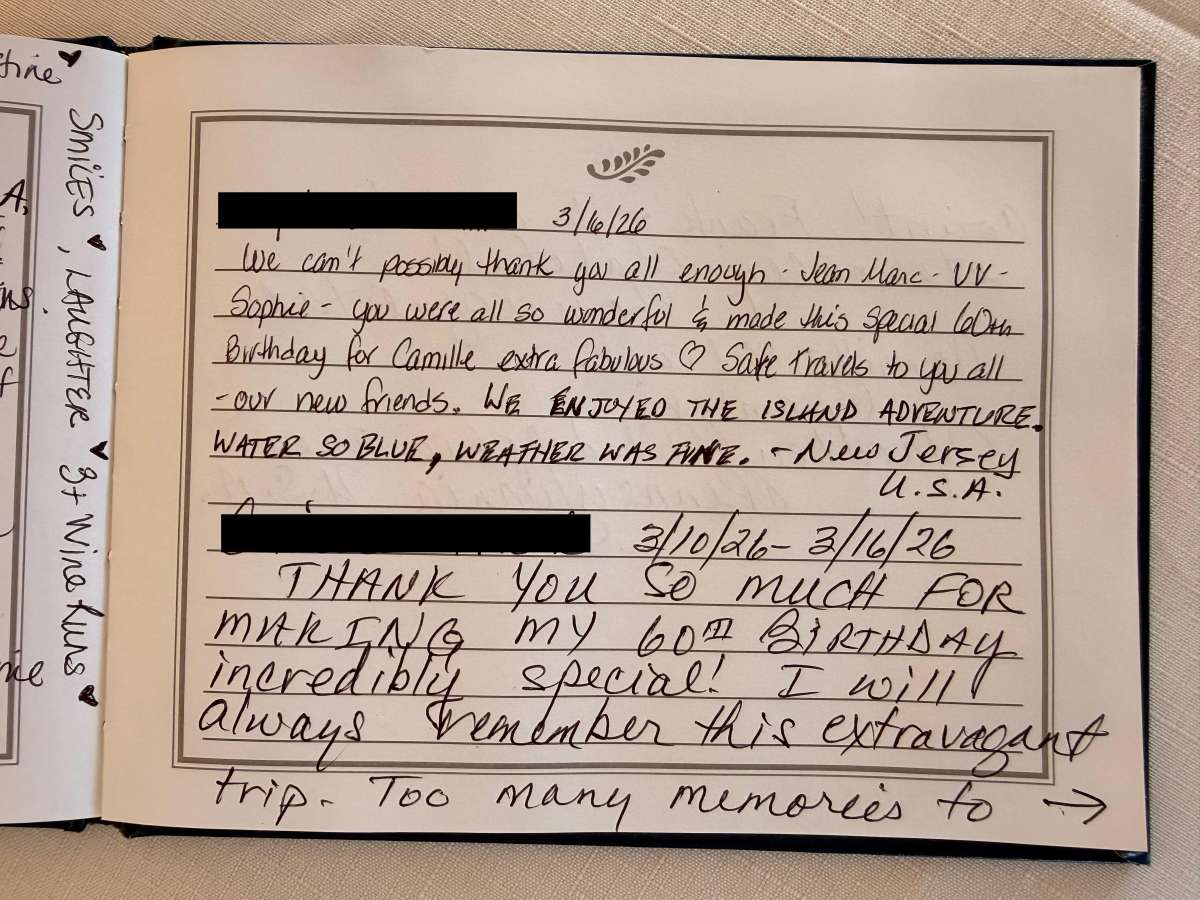 SMILES ♥, LAUGHTER ♥ 3+ Wine Runs ♥
3/16/26
We can't possibly thank you all enough - Jean Marc - VV -
Sophie - you were all so wonderful & made this special 60th
Birthday for Camille extra fabulous ♡ Safe Travels to you all
- our new friends. WE ENJOYED THE ISLAND ADVENTURE.
WATER SO BLUE, WEATHER WAS FINE. - New Jersey
U.S.A.
3/10/26 - 3/16/26
THANK YOU SO MUCH FOR
MAKING MY 60TH BIRTHDAY
incredibly special! I will
always remember this extravagant
trip. Too many memories to →